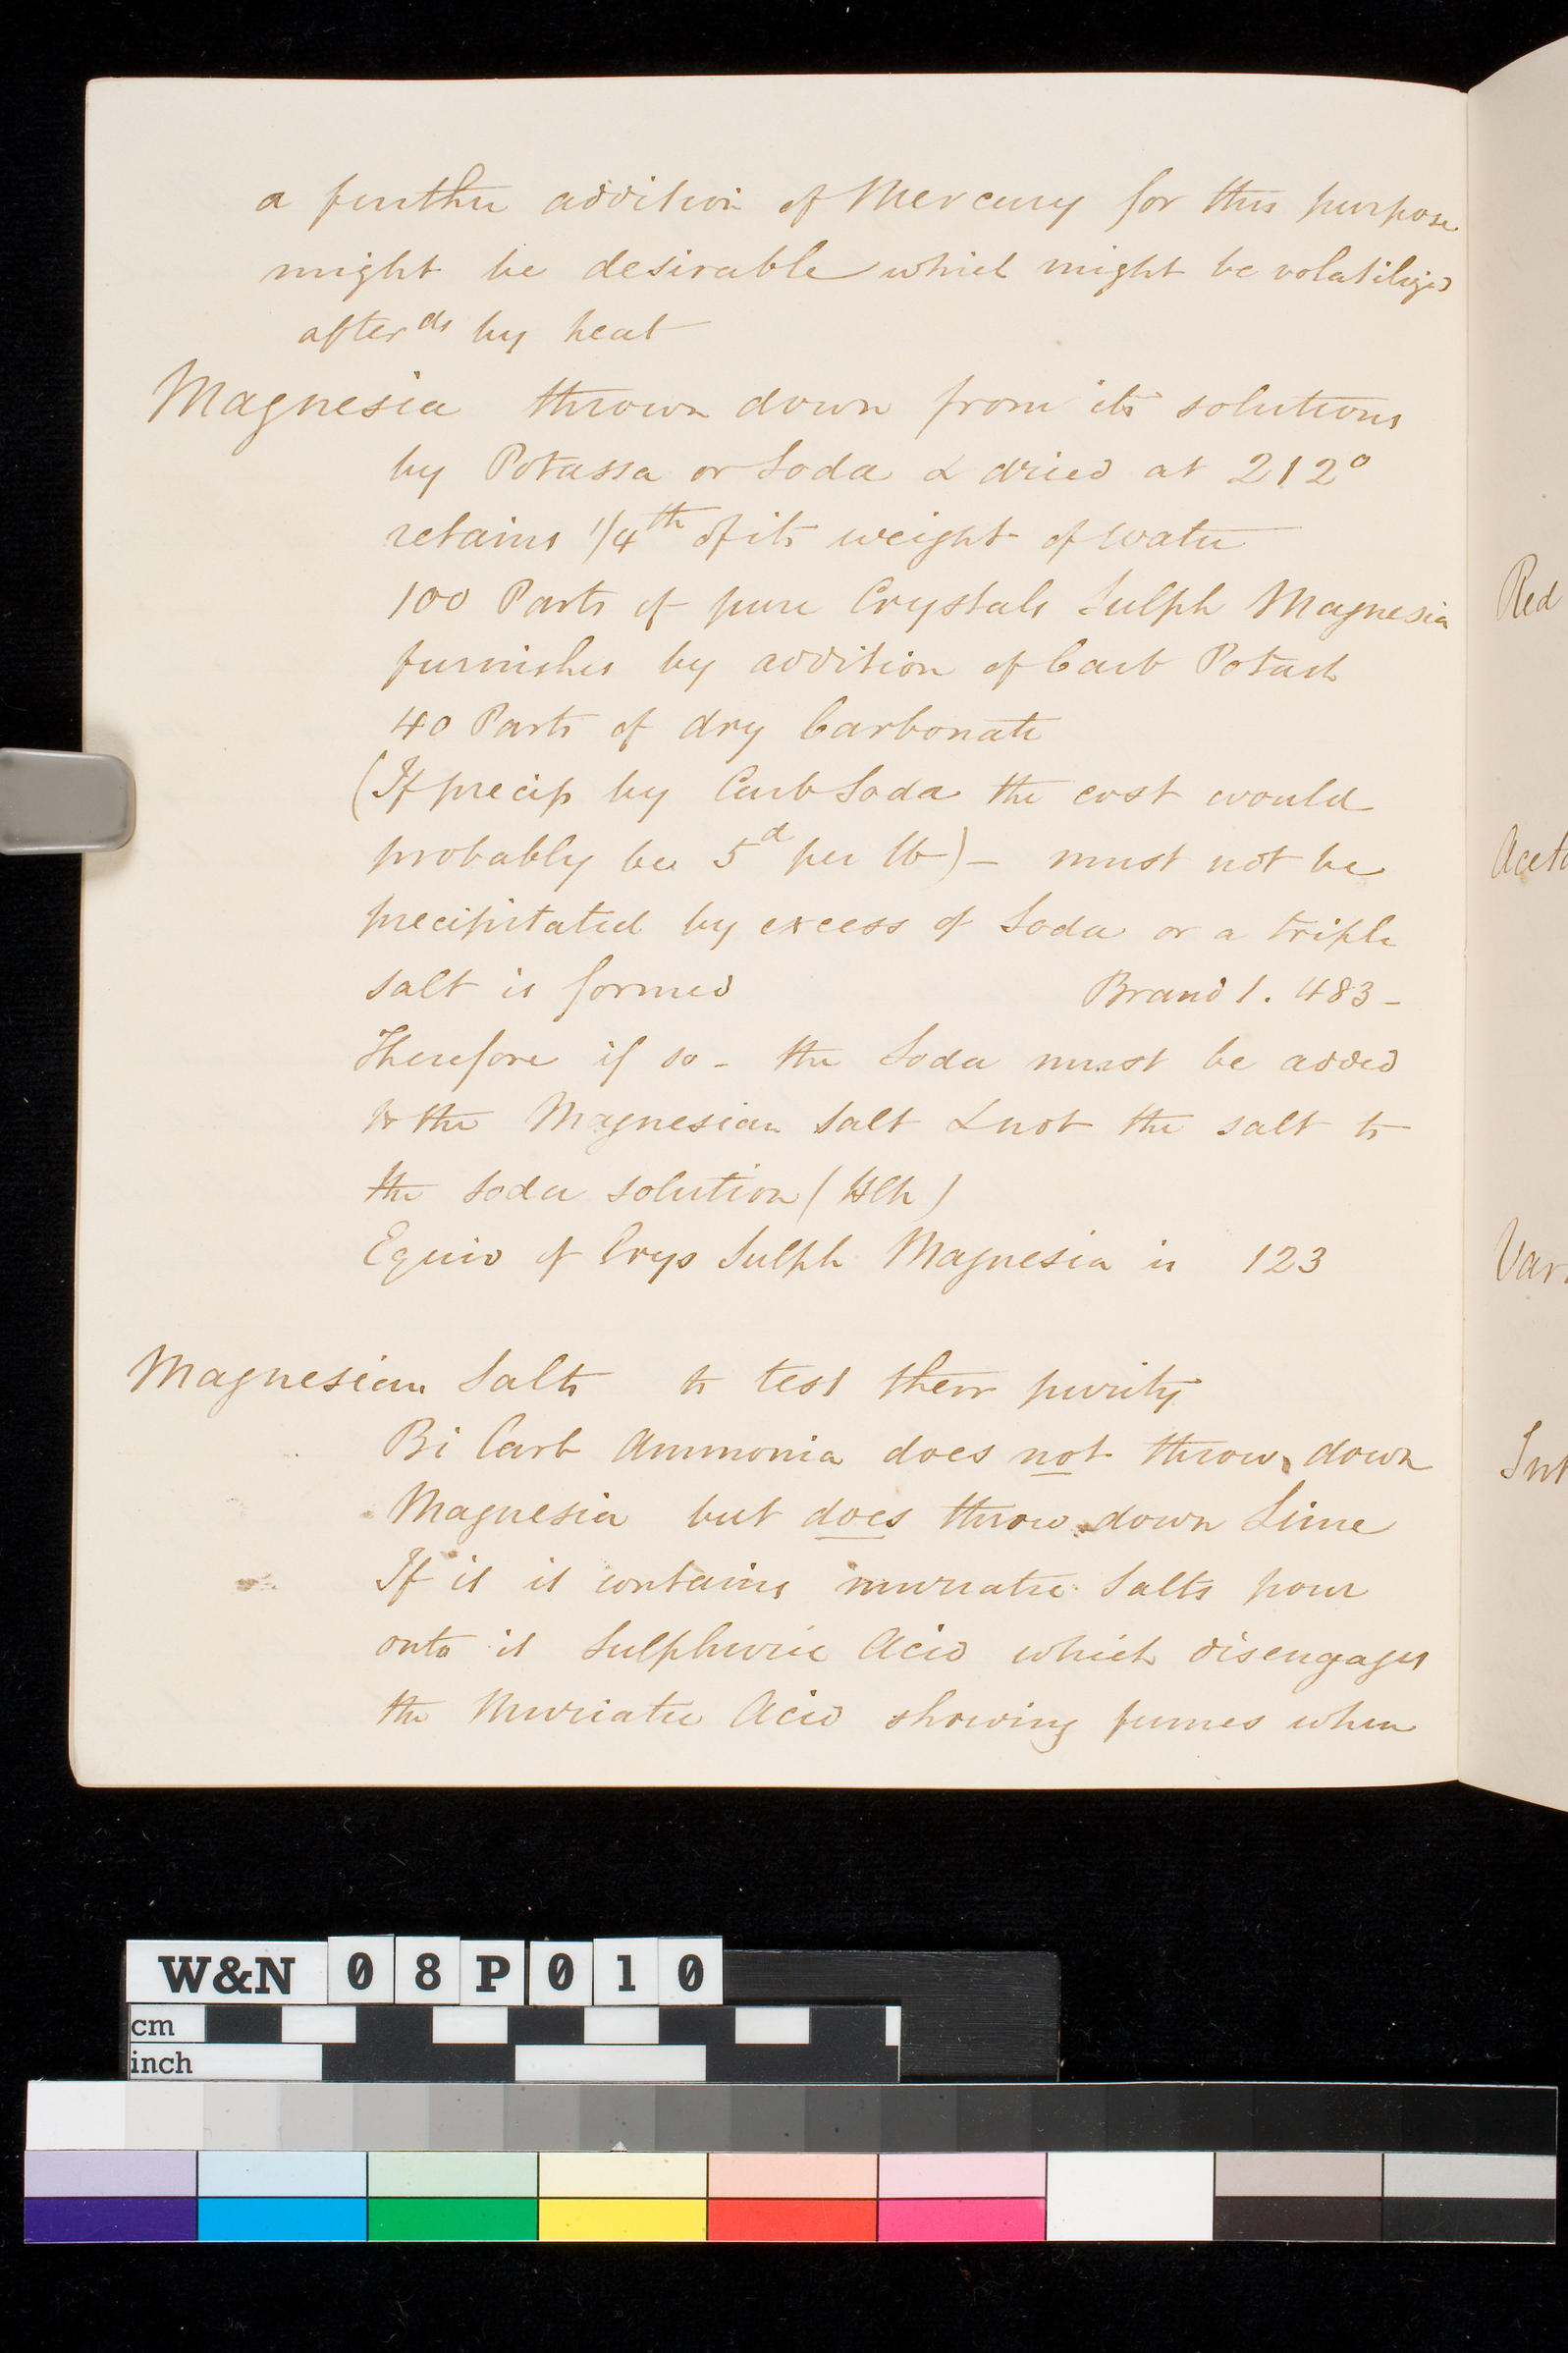 a further addition of Mercury for this purpose
might be desirable which might be volatilized
after ds by heat
Magnesia thrown down from its solutions
by Potassa or Soda & dried at 212°
retains 1/4th of its weight of water
100 Parts of pure Crystals Sulph Magnesia
furnishes by addition of Carb Potash
40 Parts of dry Carbonate
(If precip by Carb Soda the cost would
probably be 5d per lb) – must not be
precipitated by excess of Soda or a triple
salt is formed Brand 1. 483 –
Therefore if so – the Soda must be added
to the Magnesian Salt & not the salt to
the soda solution ( )
Equiv of Crys Sulph Magnesia is 123
Magnesian Salts to test their purity
Bi Carb Ammonia does not throw down
Magnesia but does throw down Lime
If it it contains muriatic Salts pour
onto it Sulphuric Acid which disengages
the Muriatic Acid showing fumes when
Red
Aceta
Var
Int
W&N 08P010
cm
inch